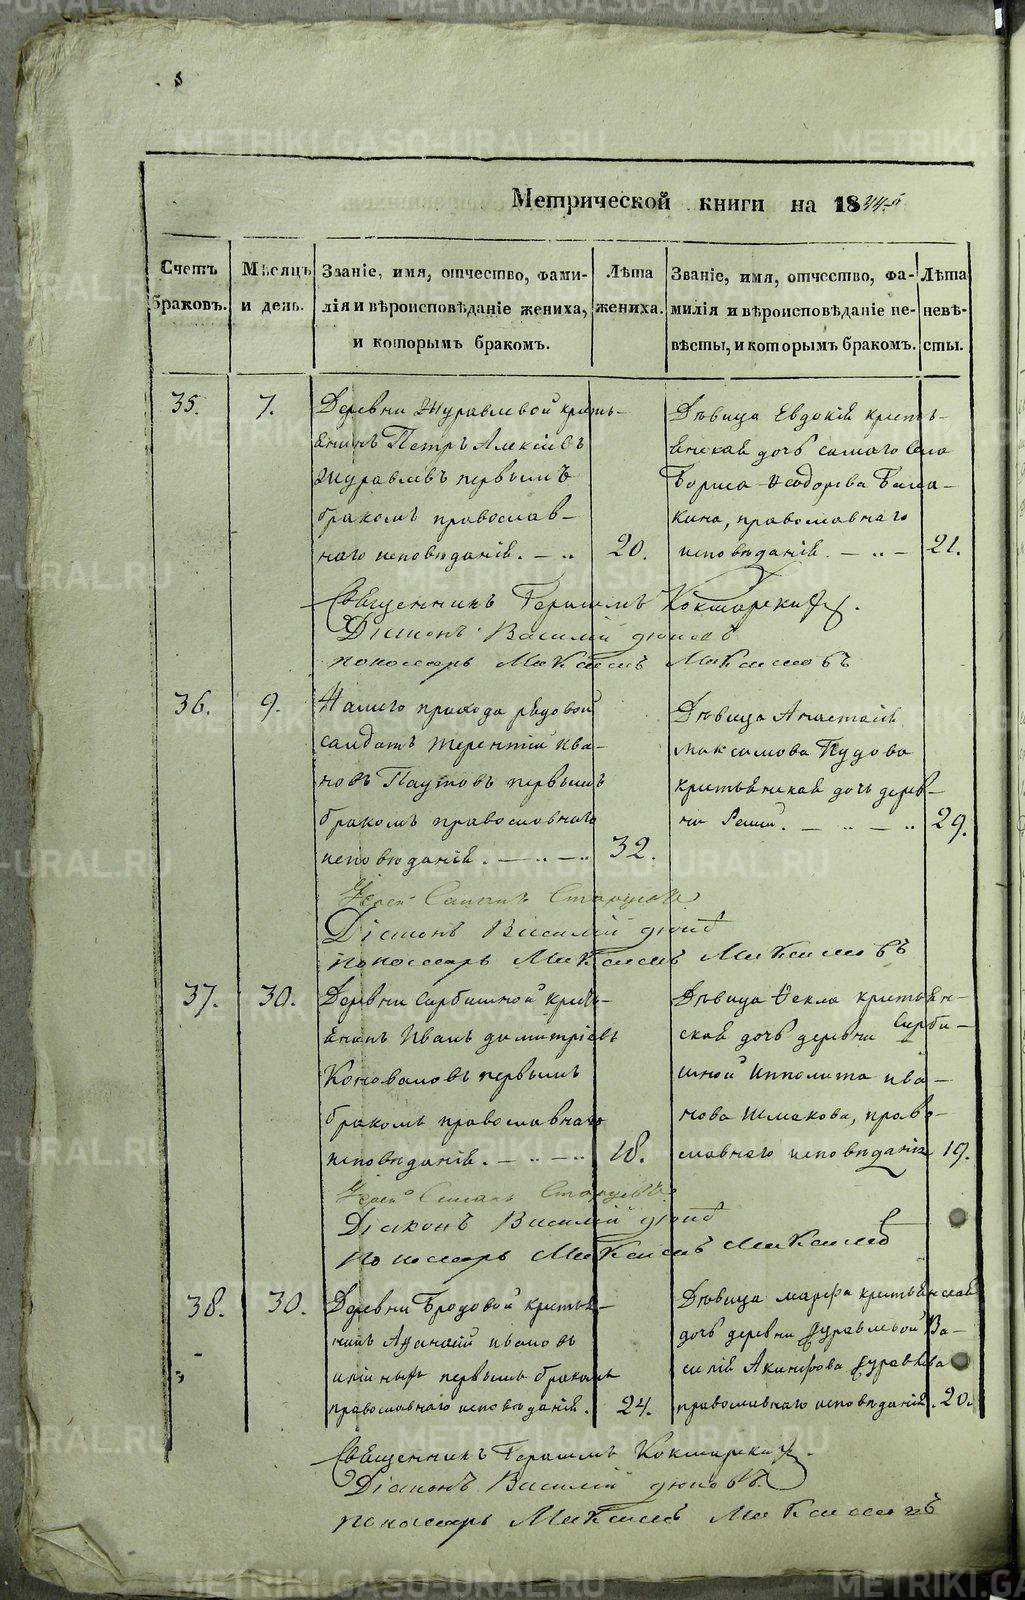 METRIKI.GASO-URAL.RU
Метрической книги на 18
Счетъ браковъ.
Мѣсяцъ и день.
Званіе, имя, отчество, фами-
лія и вѣроисповѣданіе жениха,
и которымъ бракомъ.
Лѣта
жениха.
Званіе, имя, отчество, фа-
милія и вѣроисповѣданіе не-
вѣсты, и которымъ бракомъ.
Лѣта
невѣ-
сты.
35.
7.
Деревни Журавлевой кресть-
янинъ Петръ Алексіевъ
Журавлевъ первымъ
бракомъ православ-
наго исповѣданія.
20.
Дѣвица Евдокія кресть-
янская дочь самаго Села
Бориса Ѳеодорова
православнаго
исповѣданія.
21.
Священникъ Герасимъ Кокшарскій.
Діаконъ Василій
пономарь Максимъ Максимовъ
36.
9.
Нашего прихода рядовой
солдатъ Терентій Ива-
новъ Паутовъ первымъ
бракомъ православнаго
исповѣданія.
32.
Дѣвица Анастасія
Максимова Пудова
крестьянская дочь дерев-
ни
29.
Іерей
Діаконъ Василій
пономарь Максимъ Максимовъ
37.
30.
Деревни крестьянинъ Иванъ Димитріевъ
Коноваловъ первымъ
бракомъ православнаго
исповѣданія.
18.
Дѣвица Ѳекла крестьян-
ская дочь деревни
Ипполита Ива-
нова Шмакова, право-
славнаго исповѣданія
19.
Іерей
Діаконъ Василій
пономарь Максимъ
38.
30.
Деревни Бродовой крестья-
нинъ
первымъ бракомъ
православнаго исповѣданія.
24.
Дѣвица Марфа крестьянская
дочь деревни Журавлевой Ва-
силія Акинфова Журавлева
православнаго исповѣданія.
20.
Священникъ Герасимъ Кокшарскій.
Діаконъ Василій
пономарь Максимъ Максимовъ